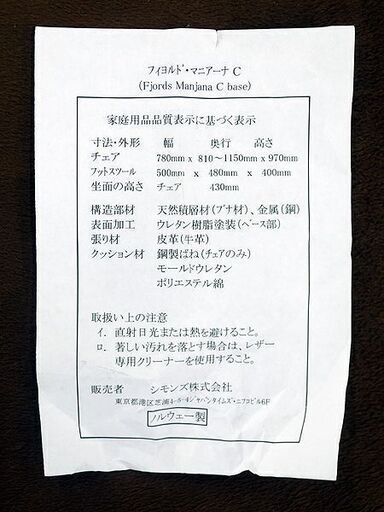 フィヨルド・マニアーナ C
(Fjords Manjana C base)
家庭用品品質表示に基づく表示
寸法・外形 幅 奥行 高さ
チェア 780mm x 810～1150mm x 970mm
フットスツール 500mm x 480mm x 400mm
座面の高さ チェア 430mm
構造部材 天然積層材(ブナ材)、金属(鋼)
表面加工 ウレタン樹脂塗装(ベース部)
張り材 皮革(牛革)
クッション材 鋼製ばね(チェアのみ)
モールドウレタン
ポリエステル綿
取扱い上の注意
イ. 直射日光または熱を避けること。
ロ. 著しい汚れを落とす場合は、レザー
専用クリーナーを使用すること。
販売者 シモンズ株式会社
東京都港区芝浦4-5-4ジャパンタイムズ・ニフコビル6F
ノルウェー製